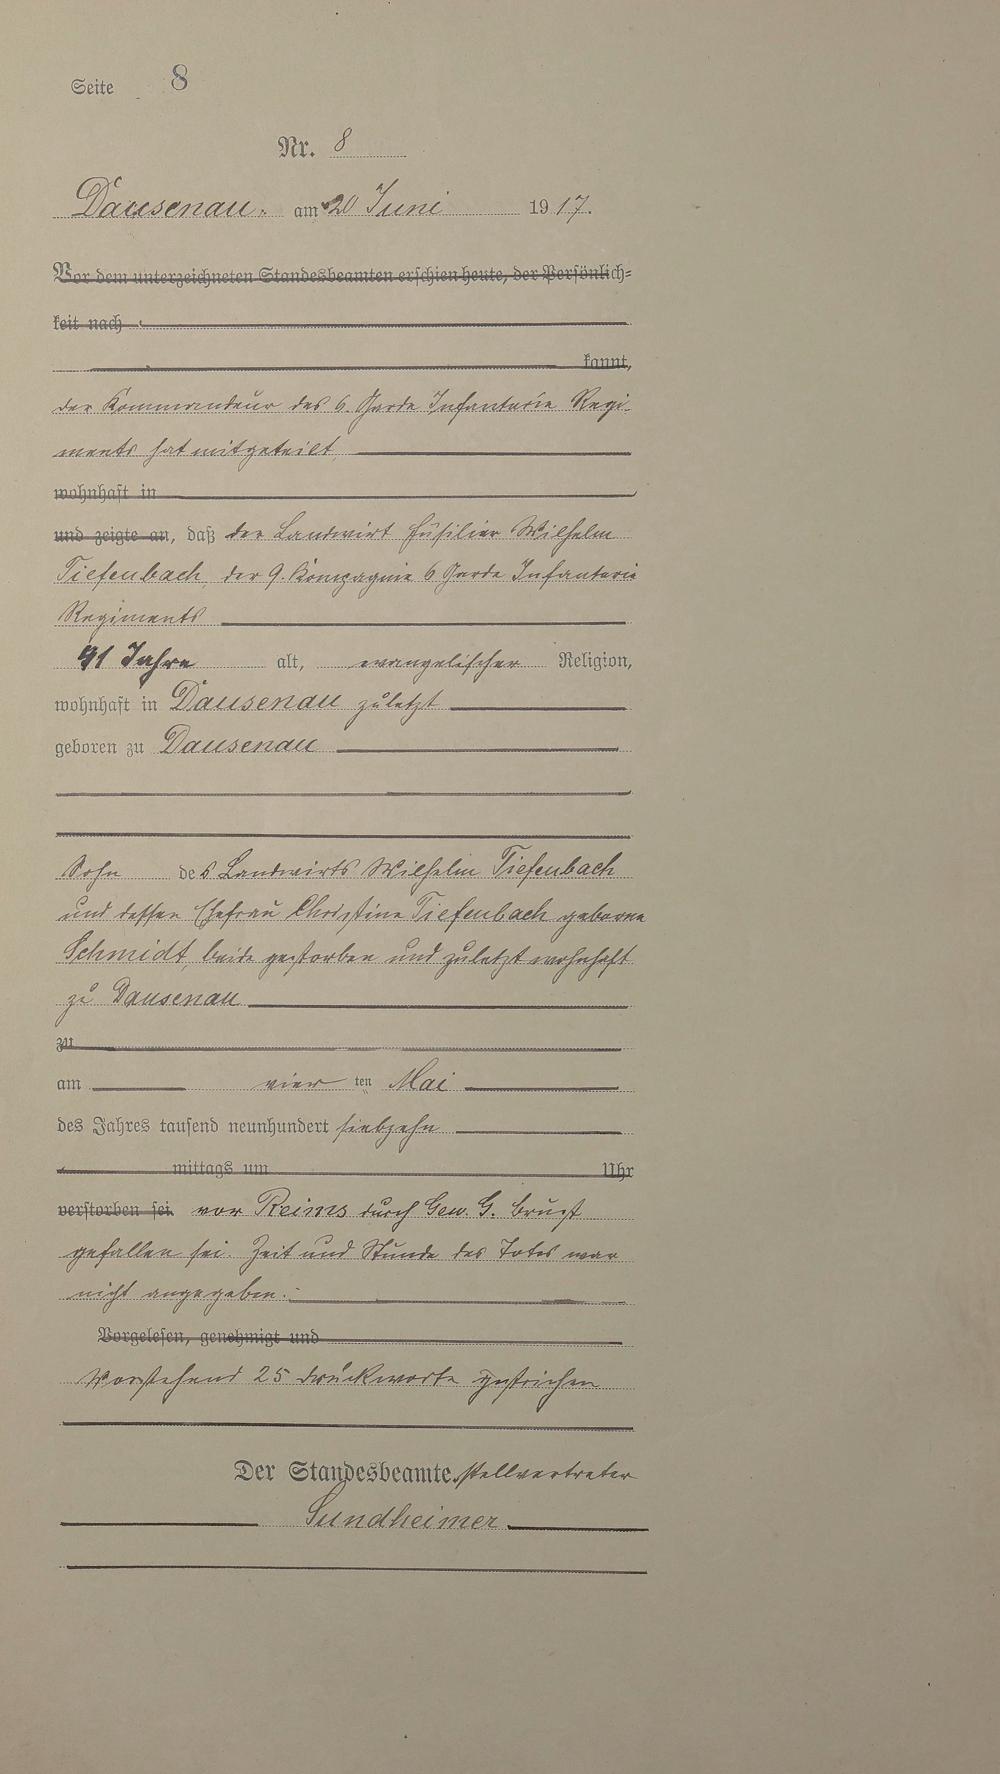 Seite 8
Nr. 8
Dausenau. am 20 Juni 1917.
Vor dem unterzeichneten Standesbeamten erschien heute, der Persönlich=
keit nach
kannt,
der Kommandeur des 6. Garde Infanterie Regi-
ments hat mitgeteilt,
wohnhaft in
und zeigte an, daß der Landwirt Füsilier Wilhelm
Tiefenbach, der 9. Kompagnie 6 Garde Infanterie
Regiments
41 Jahre alt, evangelischer Religion,
wohnhaft in Dausenau zuletzt
geboren zu Dausenau
Sohn des Landwirts Wilhelm Tiefenbach
und dessen Ehefrau Christine Tiefenbach geborne
Schmidt, beide gestorben und zuletzt wohnhaft
zu Dausenau
zu
am vier ten Mai
des Jahres tausend neunhundert siebzehn
mittags um Uhr
verstorben sei. vor Reims durch Gew. G. Brust
gefallen sei. Zeit und Stunde des Todes war
nicht angegeben.
Vorgelesen, genehmigt und
Vorstehend 25 Druckworte gestrichen
Der Standesbeamte. stellvertreter
Sundheimer